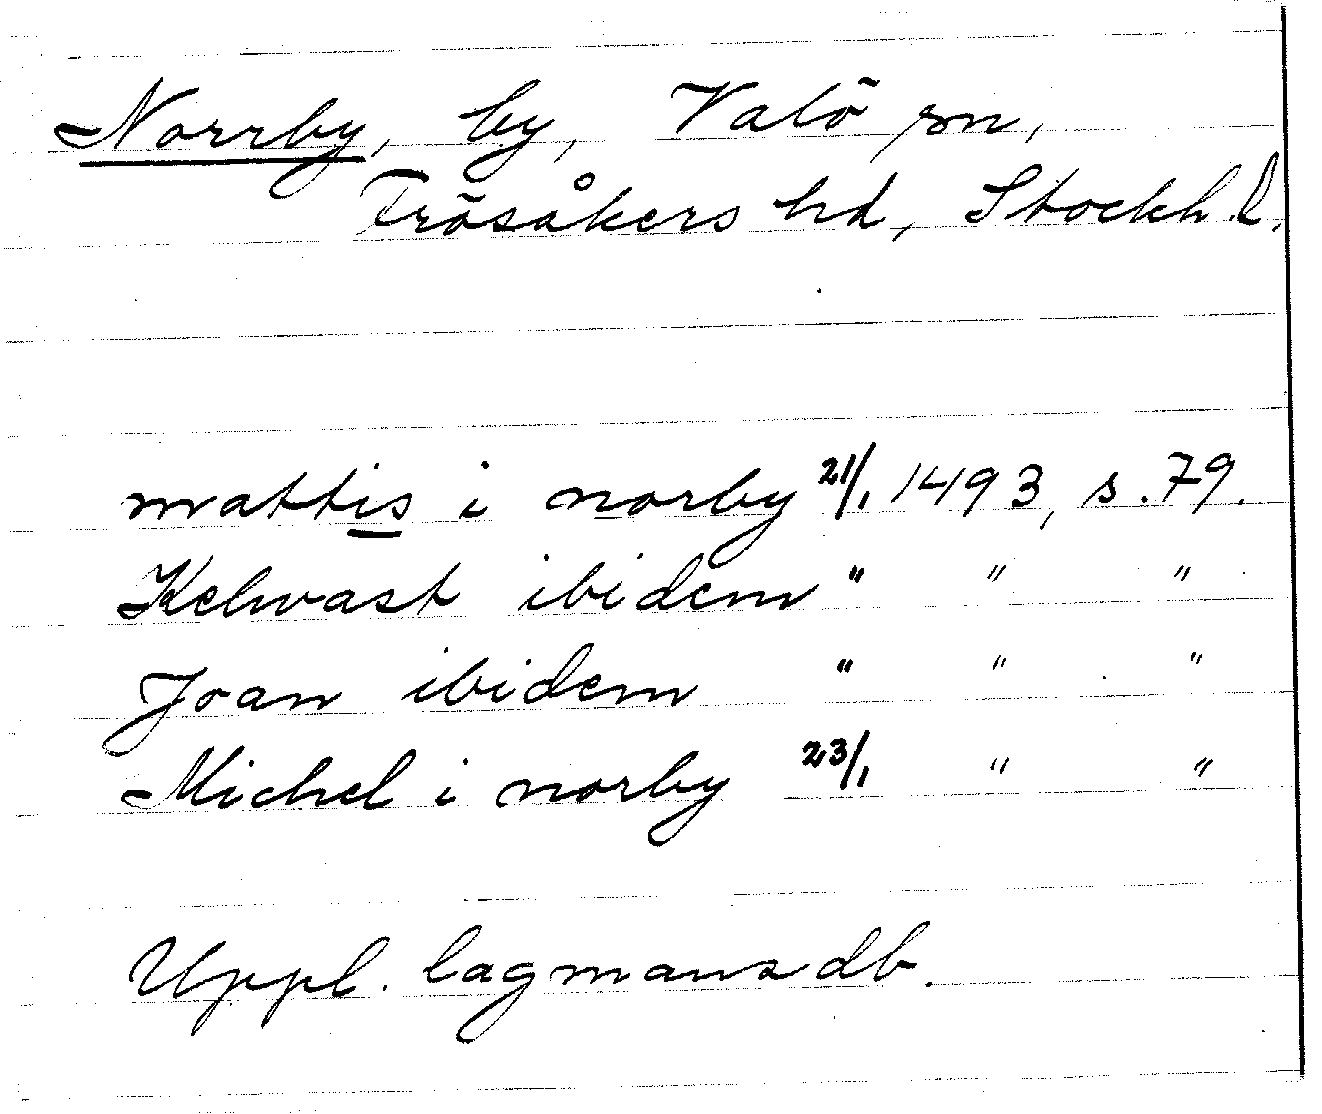 Norrby, by, Valö sn,
Frösåkers hd, Stockh. l.
mattis i norby 21/1 1493, s. 79.
Kelwast ibidem " " "
Joan ibidem " " "
Michel i norby 23/1 " "
Uppl. lagmansdb.